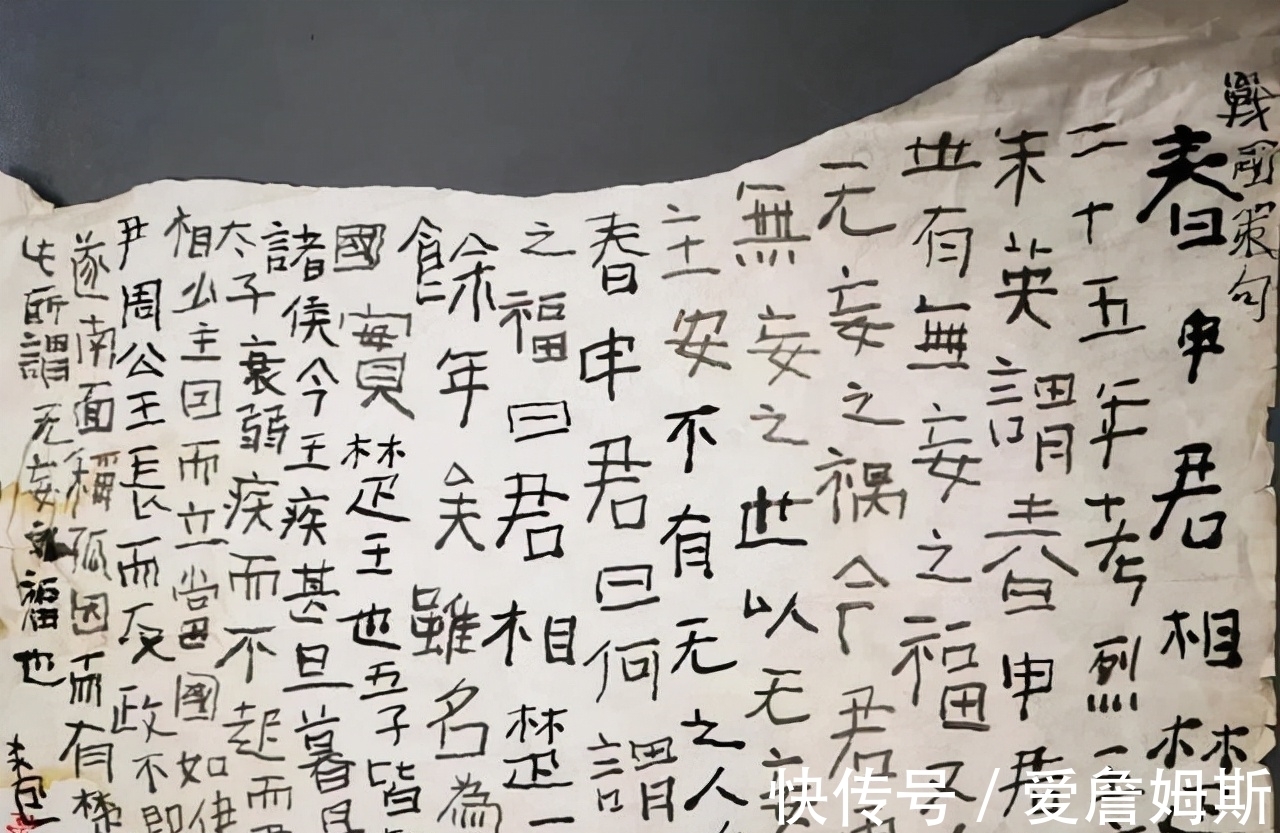 戰國策句
春申君相楚
二十五年考烈
朱英謂春申君
世有無妄之福又
无妄之禍今君
無妄之世以无妄
主安不有无之人
春申君曰何謂
之福曰君相楚
餘年矣雖名為
國實楚王也五子皆
諸侯今王疾甚旦暮且
太子衰弱疾而不起而
相少主因而立當國如伊
尹周公王長而反政不即
遂南面稱孤因而有楚
此所謂无妄福也
快传号 / 爱詹姆斯